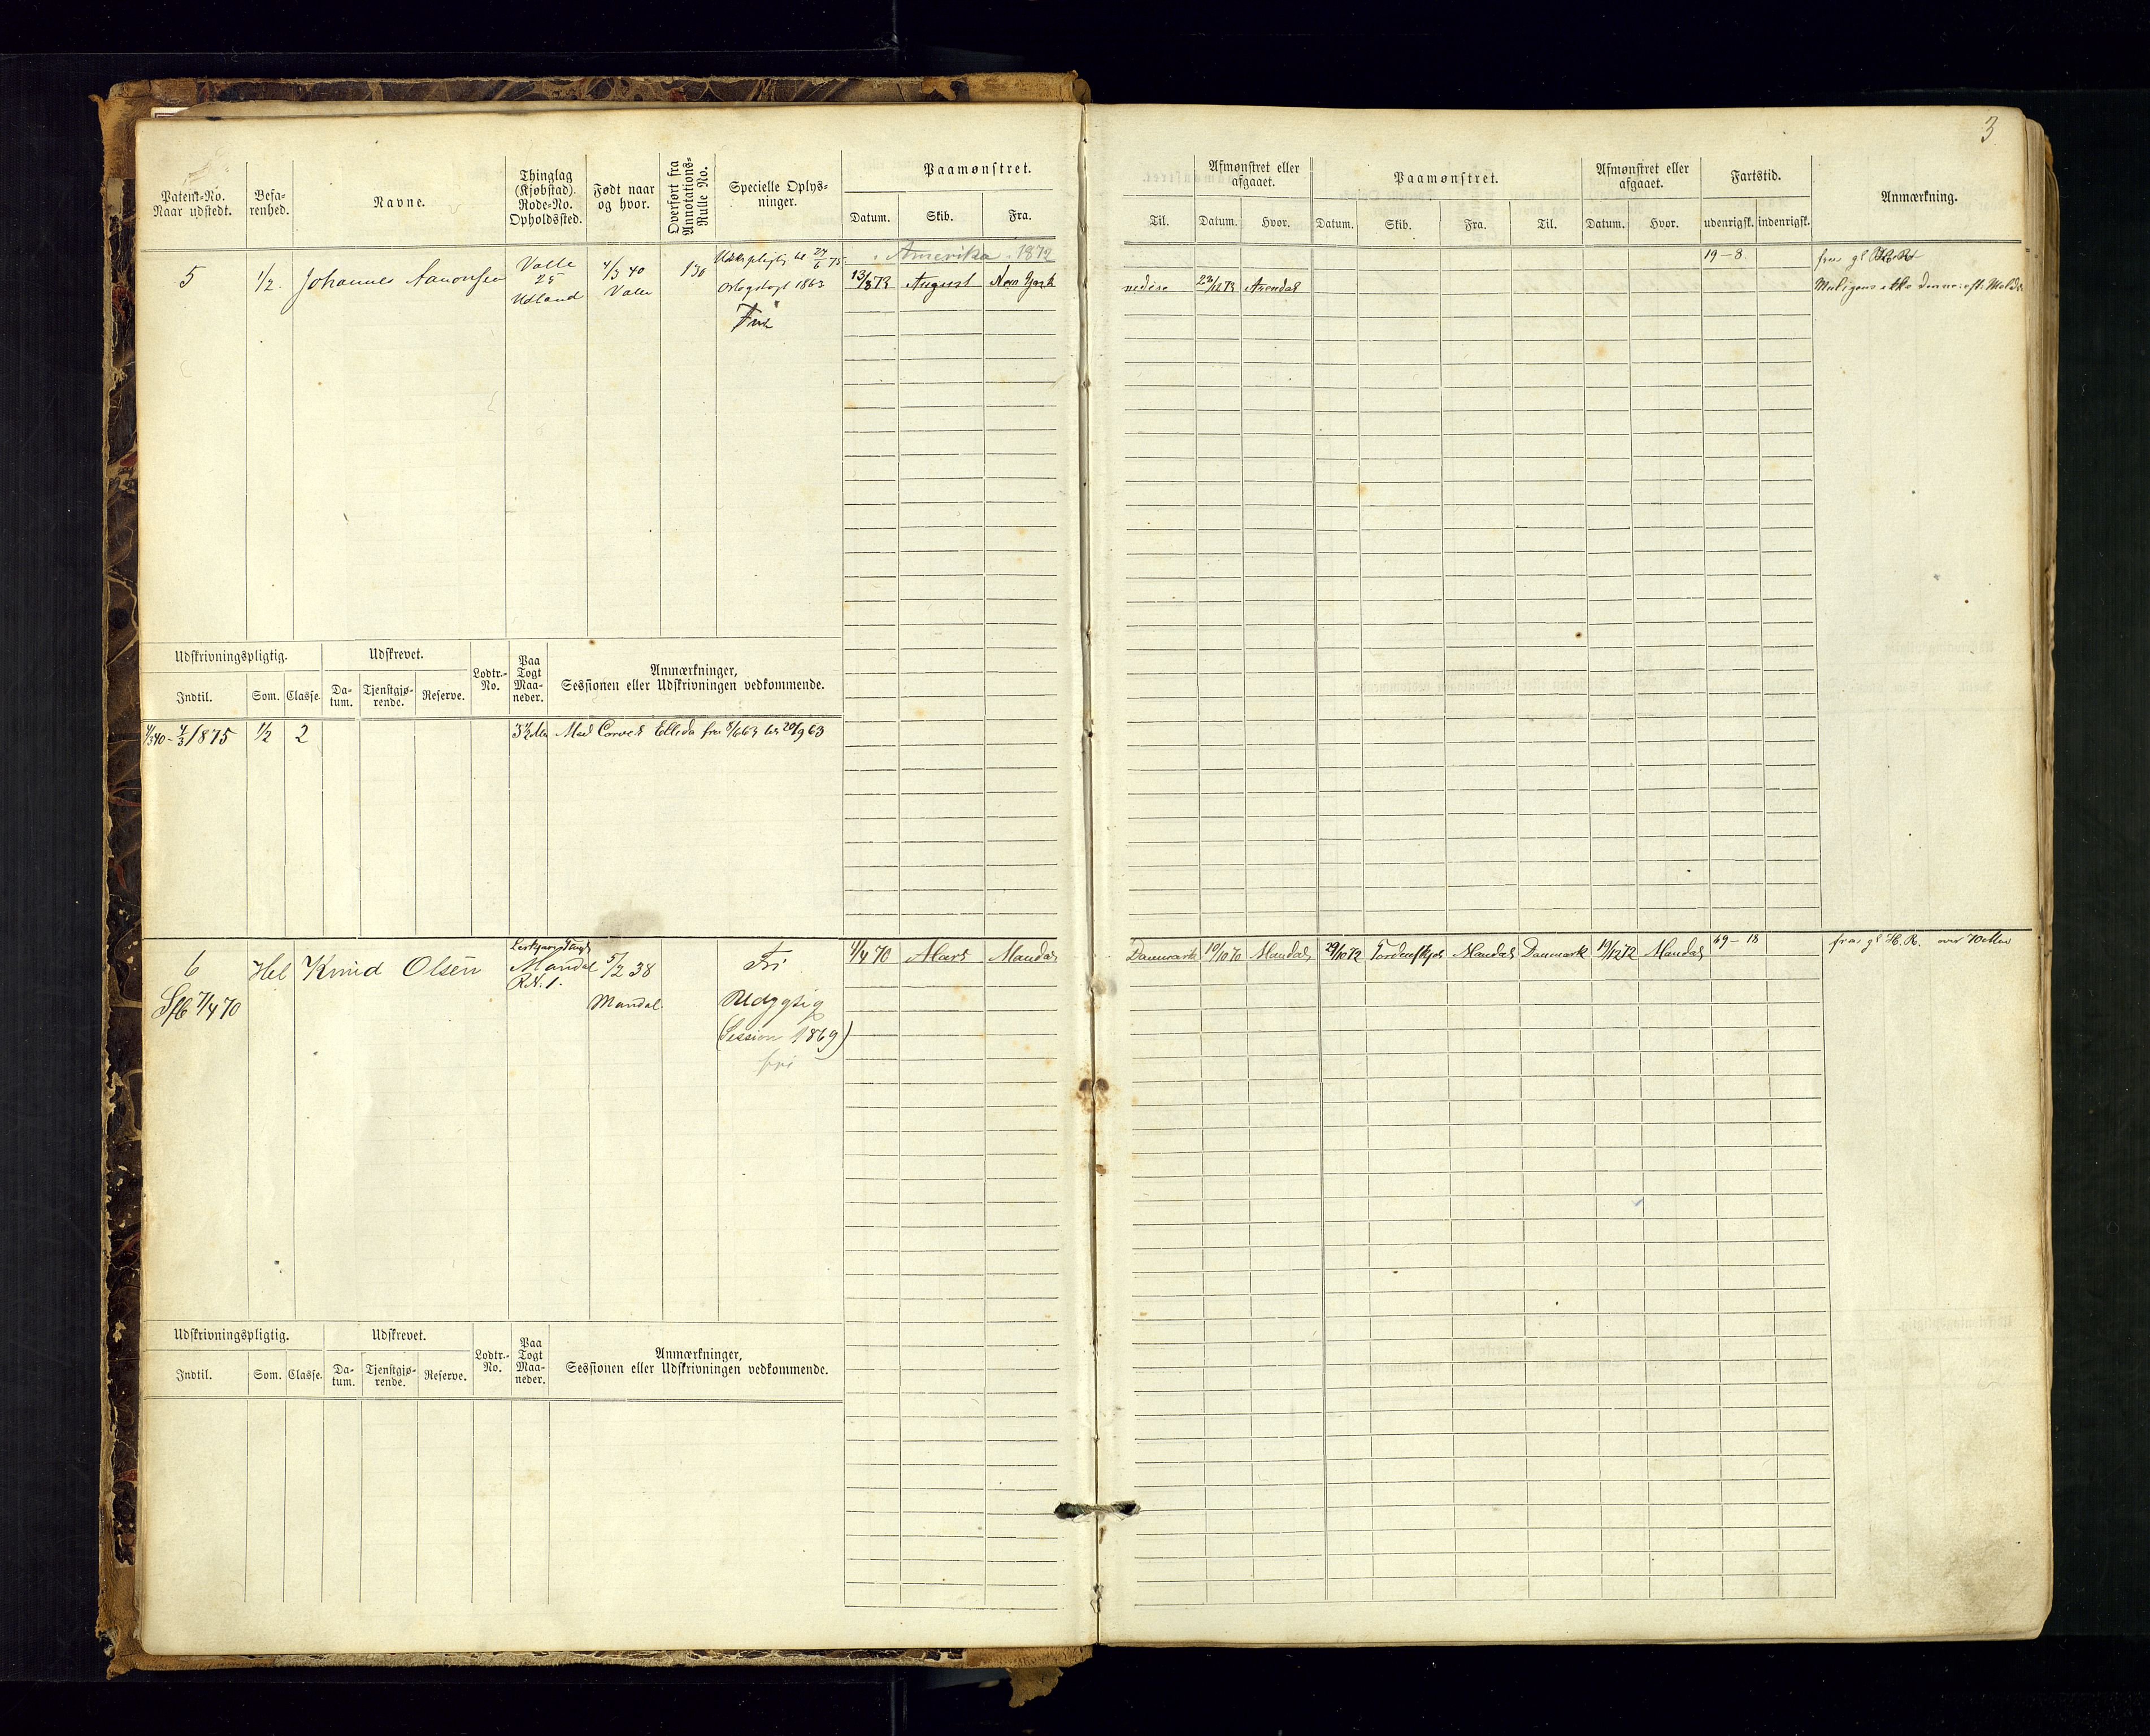 3
Patent-No.
Naar udstedt.
Befa-
renhed.
Navne.
Thinglag
(Kjøbstad).
Rode-No.
Opholdssted.
Født naar
og hvor.
Overført fra
Annotations-
Rulle No.
Specielle Oplys-
ninger.
Paamønstret.
Datum. Skib. Fra.
Til.
Afmønstret eller
afgaaet.
Datum. Hvor.
Paamønstret.
Datum. Skib. Fra. Til.
Afmønstret eller
afgaaet.
Datum. Hvor.
Fartstid.
udenrigsk. indenrigsk.
Anmærkning.
5
1/2.
Johannes Aanonsen
Valle
25
Udland
4/3 40
Valle
130
til 24/6 75.
1863
Amerika 1872
13/8 73 August New York
nedise 23/12 73 Arendal
19-8.
fra gl H.R.
denne
Udskrivningspligtig.
Indtil. Som. Classe.
Udskrevet.
Da-
tum.
Tjenstgjø-
rende.
Reserve.
Lodtr.-
No.
Paa
Togt
Maa-
neder.
Anmærkninger,
Sessionen eller Udskrivningen vedkommende.
4/3 40 - 4/3 1875 1/2 2
3 1/2 Med Corvet Ellida fra 8/6 63 til 20/9 63
6
Sfb 7/4 70
Hel
Knud Olsen
Mandal
R.N. 1.
5/2 38
Mandal
Fri
Udygtig
(Session 1869)
fri
4/4 70 Mars Mandal
Danmark 10/10 70 Mandal
29/10 72 Tordenskjol Mandal Danmark 19/12 72 Mandal
69-18
fra gl H.R. over 70
Udskrivningspligtig.
Indtil. Som. Classe.
Udskrevet.
Da-
tum.
Tjenstgjø-
rende.
Reserve.
Lodtr.-
No.
Paa
Togt
Maa-
neder.
Anmærkninger,
Sessionen eller Udskrivningen vedkommende.